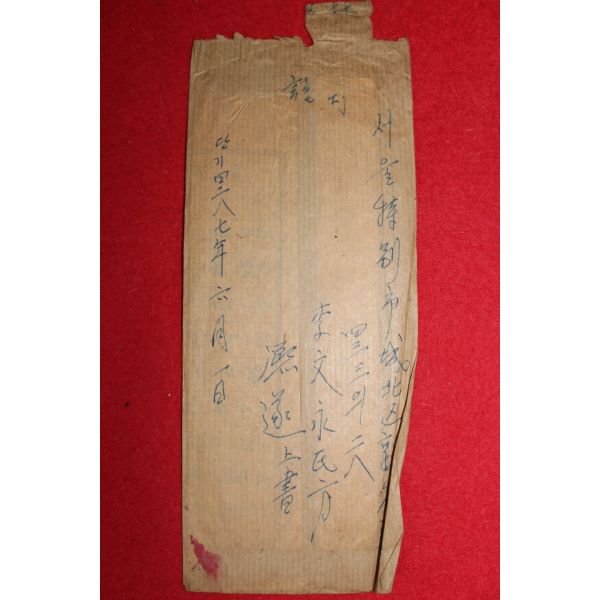 서울特別市城北区
四三三의二八
李文永氏方
熙遂上書
단기四二八七年六月一日